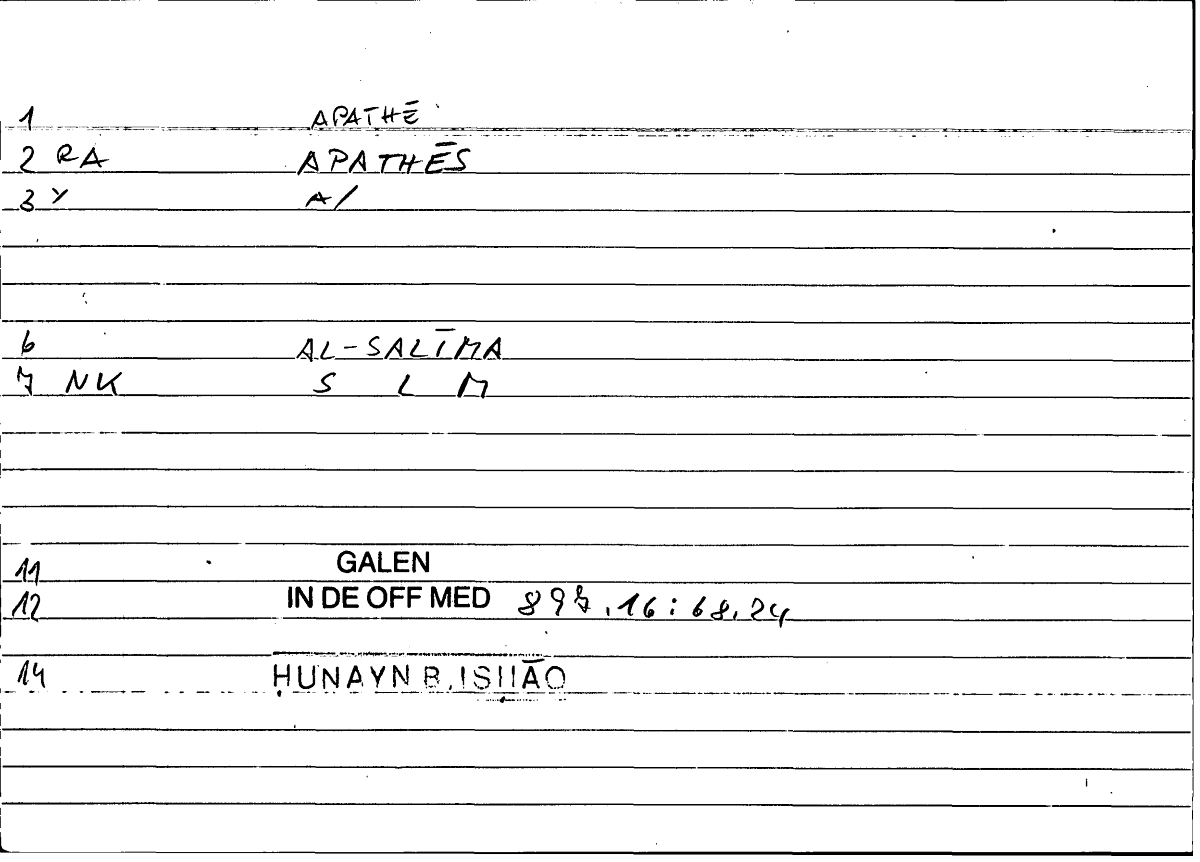 1 APATHĒ
2 RA APATHĒS
3 Y A/
6 AL-SALĪMA
7 NK S L M
11 GALEN
12 IN DE OFF MED 897.16:68.24
14 ḤUNAYN B. ISḤĀQ